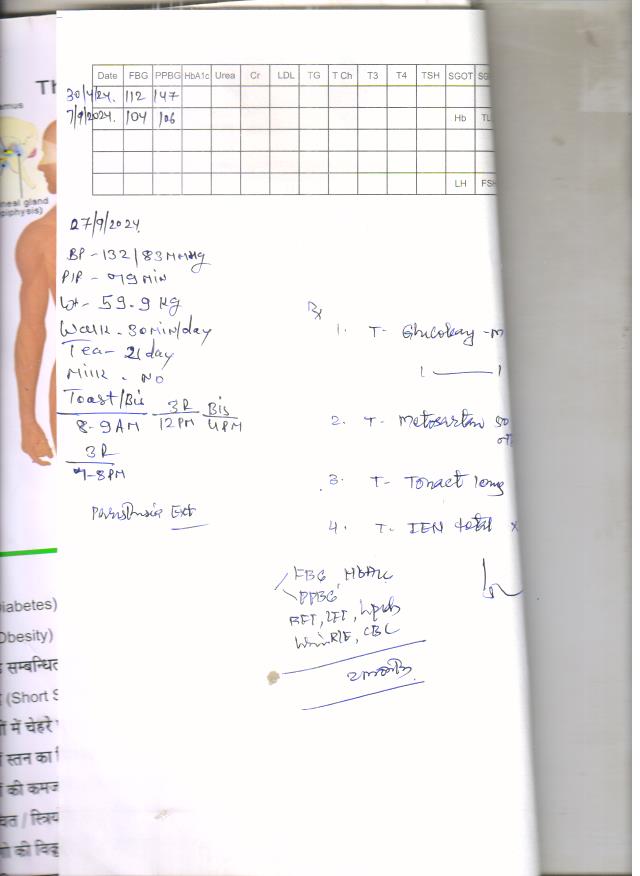 Th
amus
neal gland
piphysis)
Date FBG PPBG HbA1c Urea Cr LDL TG T Ch T3 T4 TSH SGOT SG
30/4/24. 112 147
7/9/2024. 104 106
Hb TL
LH FSH
27/9/2024
BP - 132/83 MMHg
Wt - 59.9 Kg
Walk - 30 MIN/day
Tea - 2/day
Milk - NO
Toast/Bis 3R Bis
8-9AM 12PM 4PM
3R
7-8PM
Ext
Rx
1. T- -M
1 — 1
2. T- Metosartan 50
3. T- Tonact 10mg
4. T-
FBG, HbA1c
PPBG
RFT, LFT, Lipids
Urine R/E, CBC
iabetes)
Obesity)
सम्बन्धित
(Short S
में चेहरे
स्तन का
की कमज
/ स्त्रिय
की विकृ